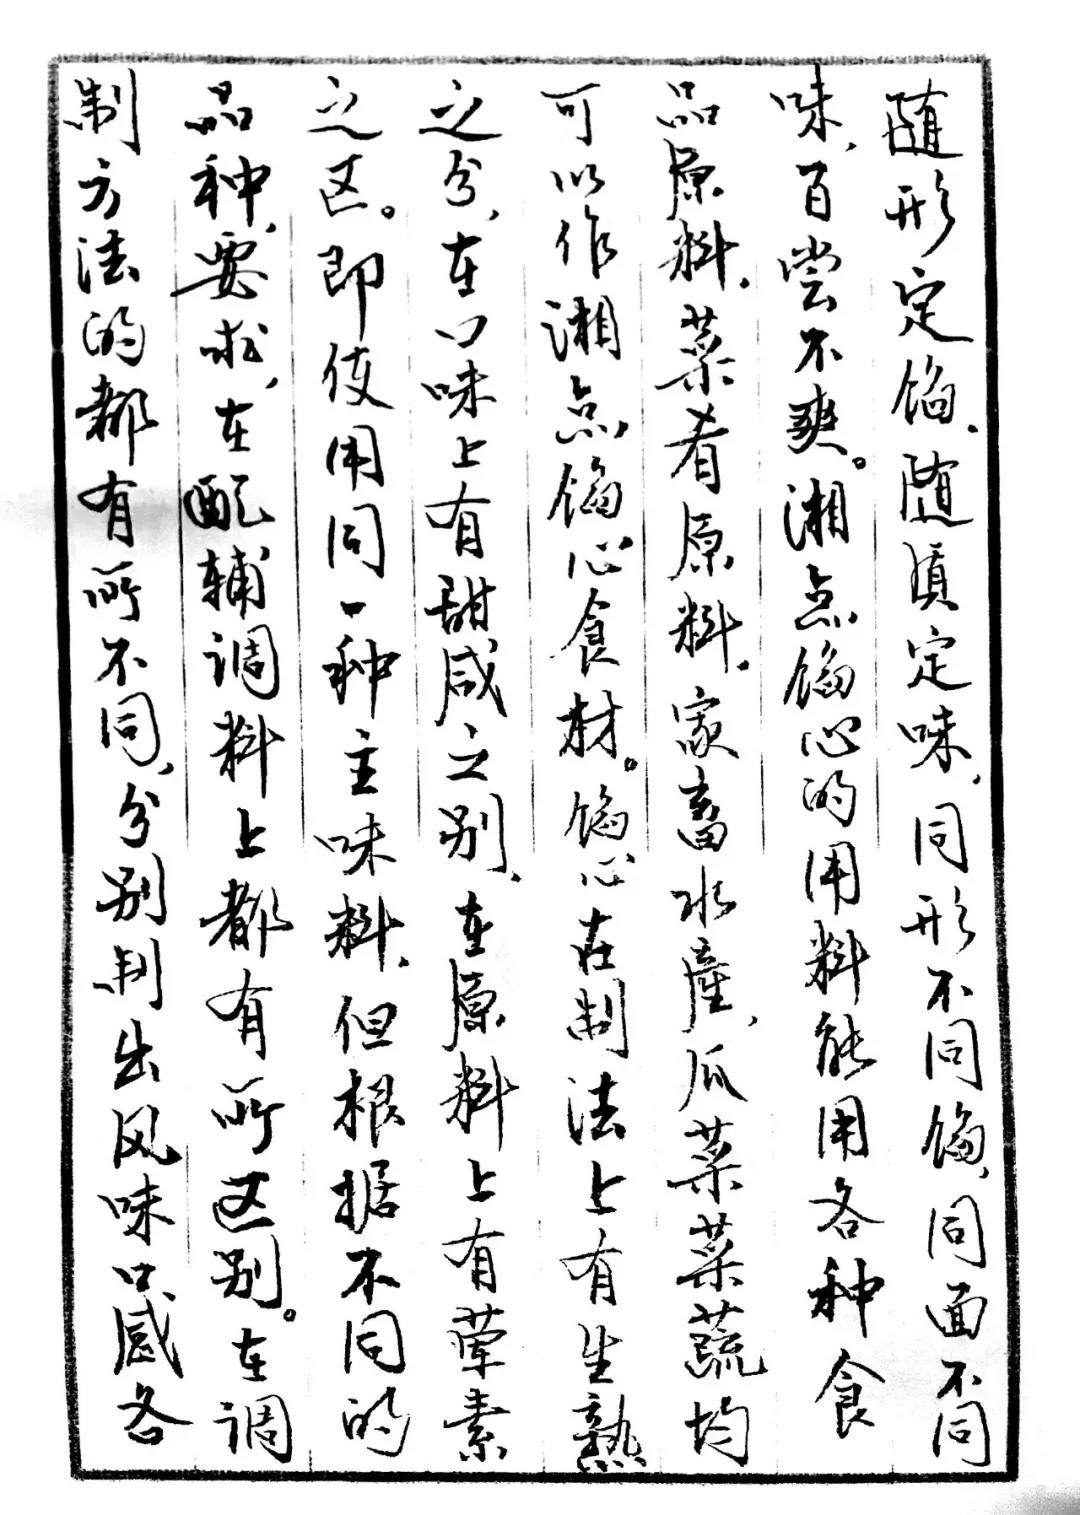 随形定馅，随馅定味，同形不同馅，同面不同
味，百尝不爽。湘点馅心的用料能用各种食
品原料，菜肴原料，家畜水產，瓜菜菜蔬均
可以作湘点馅心食材。馅心在制法上有生熟
之分，在口味上有甜咸之别，在原料上有荤素
之区。即使用同一种主味料，但根据不同的
品种，要求，在配辅调料上都有所区别。在调
制方法的都有所不同，分别制出风味口感各